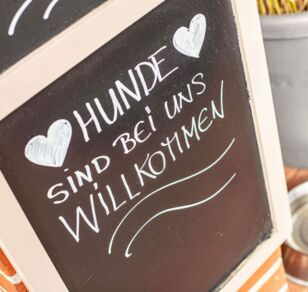 HUNDE
SIND BEI UNS
WILLKOMMEN